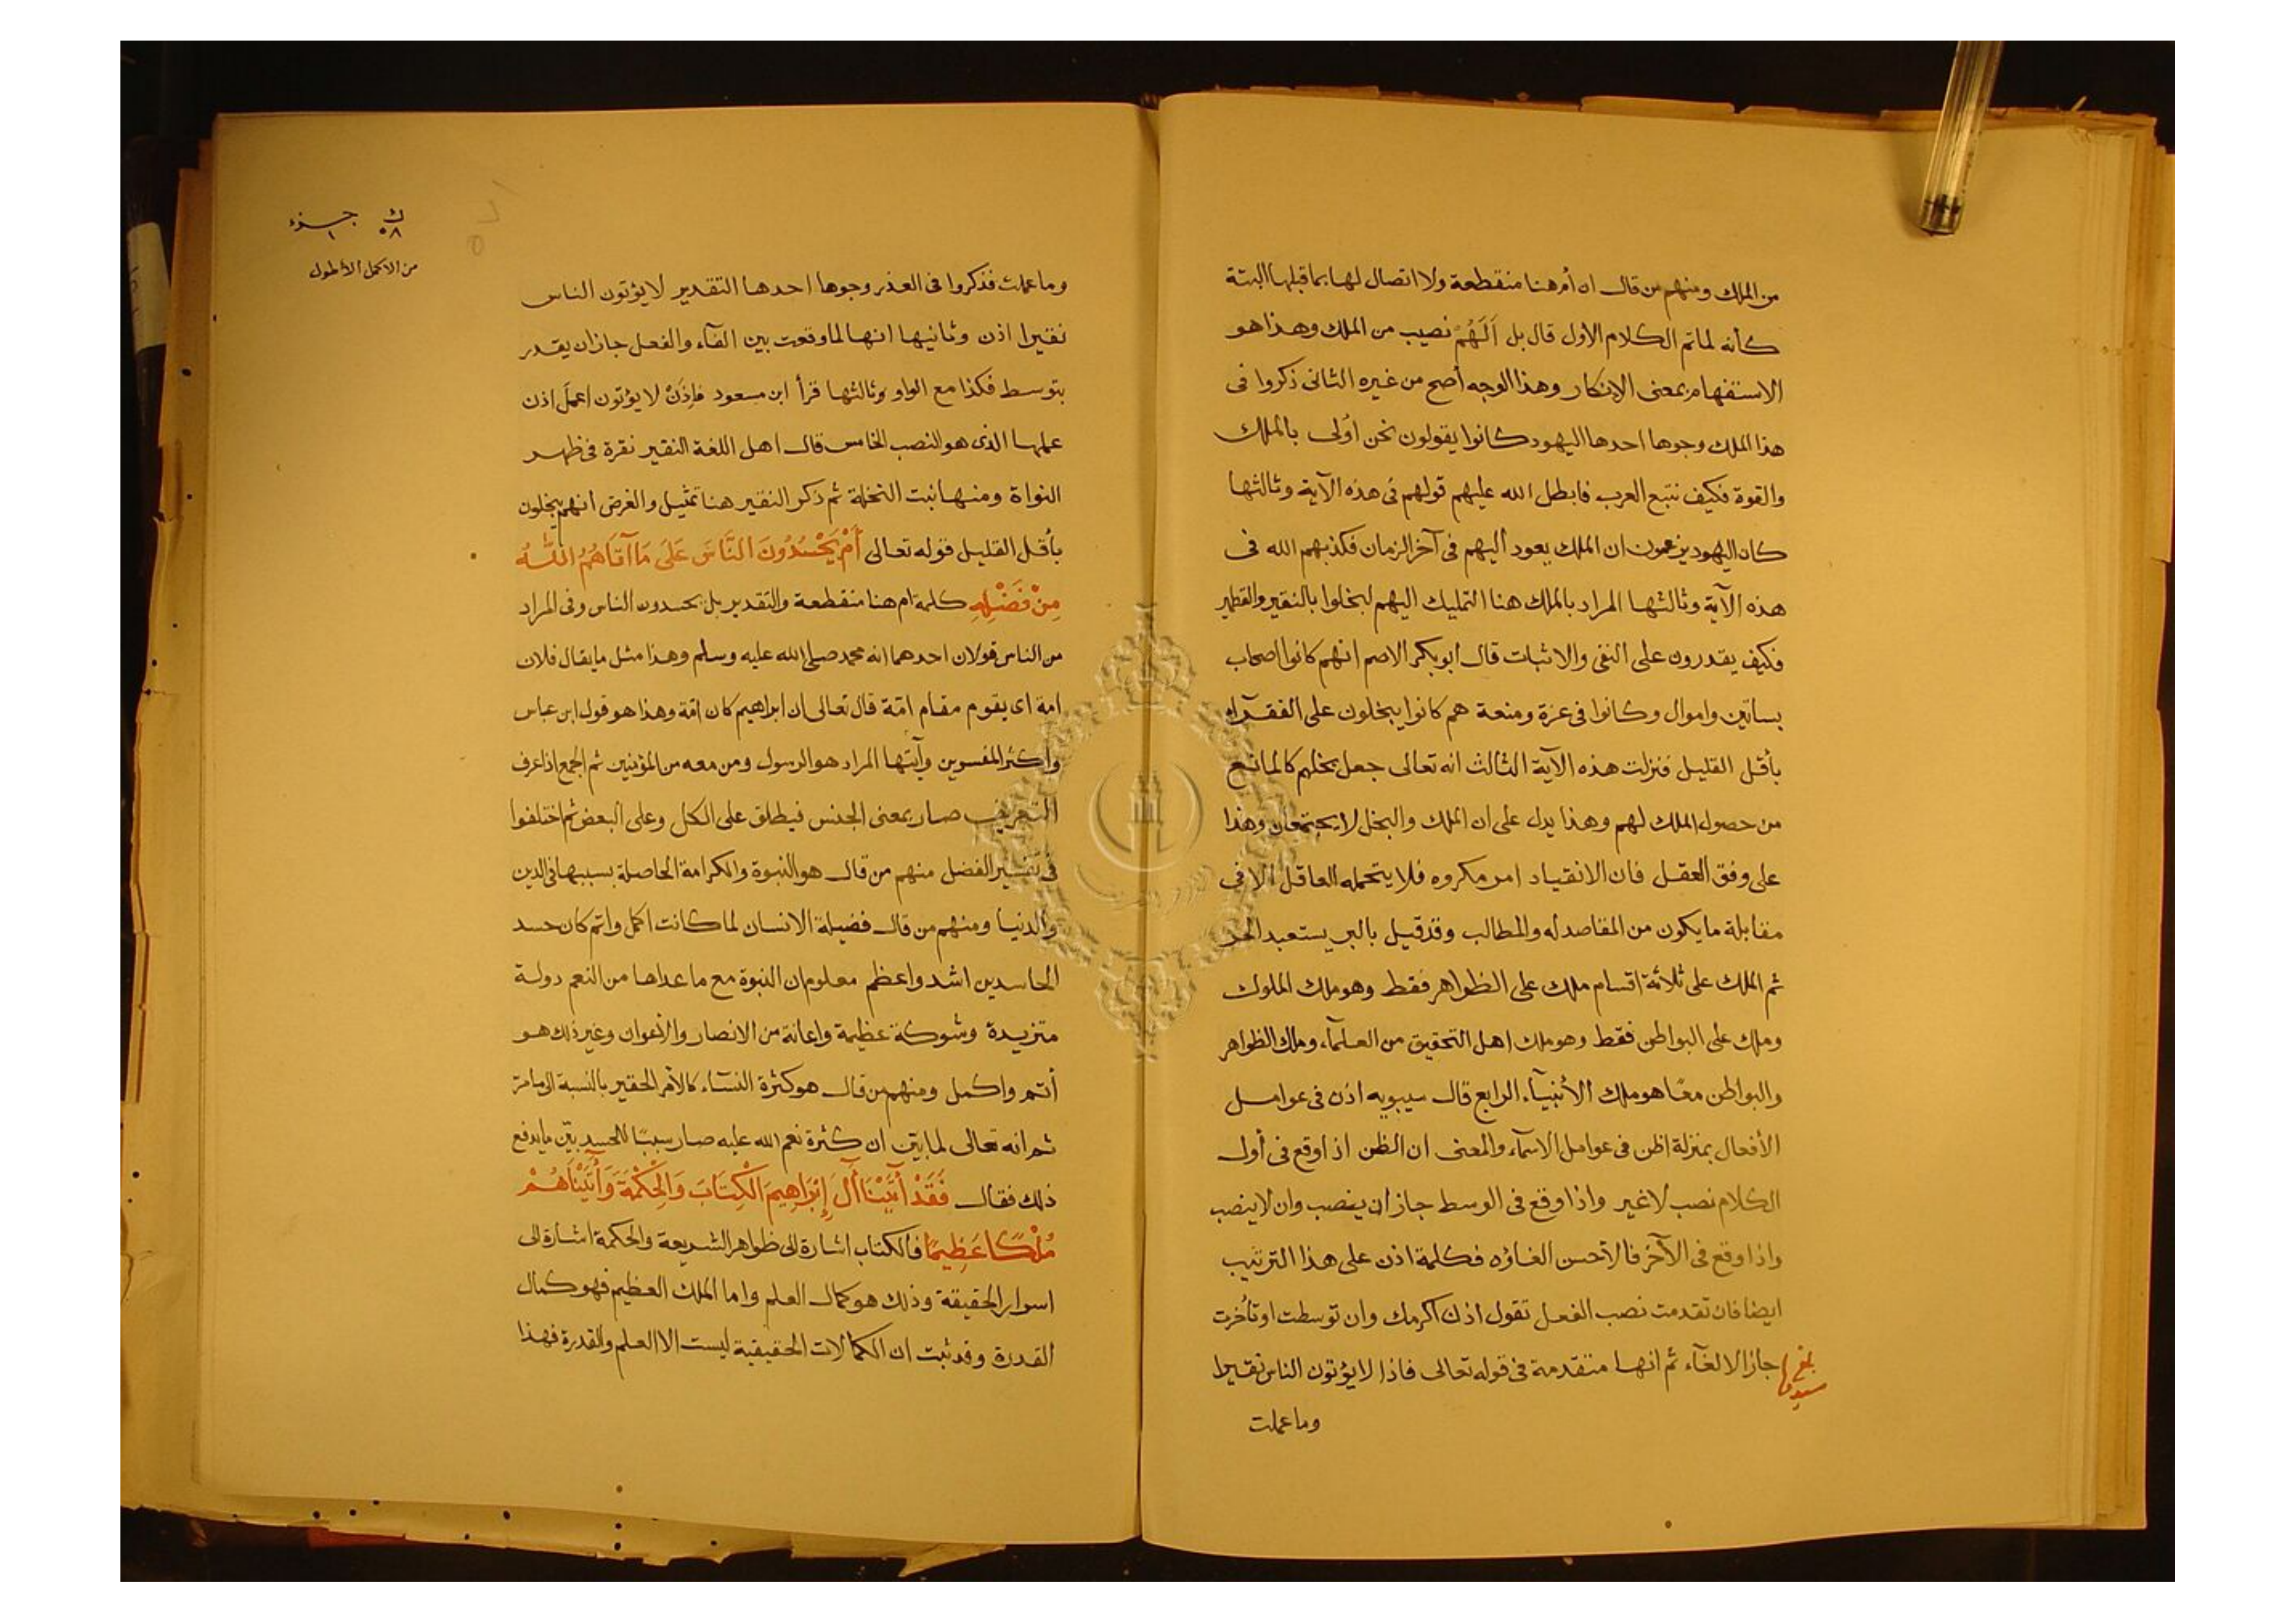 من الملك ومنهم من قال ان أم هنا منقطعة ولا اتصال لها بما قبلها البتة
كأنه لما تم الكلام الأول قال بل أَلَهُمْ نصيب من الملك وهذا هو
الاستفهام بمعنى الانكار وهذا الوجه أصح من غيره الثانى ذكروا فى
هذا الملك وجوها احدها اليهود كانوا يقولون نحن أولى بالملك
والقوة فكيف نتبع العرب فابطل الله عليهم قولهم فى هذه الآية وثالثها
كان اليهود يزعمون ان الملك يعود اليهم فى آخر الزمان فكذبهم الله فى
هذه الآية وثالثها المراد بالملك هنا التمليك اليهم لبخلوا بالنقير والقطمير
فكيف يقدرون على النفى والاثبات قال ابو بكر الاصم انهم كانوا اصحاب
بساتين واموال وكانوا فى عزة ومنعة هم كانوا يبخلون على الفقرآء
بأقل القليل فنزلت هذه الآية الثالث انه تعالى جعل بخلهم كالمانع
من حصول الملك لهم وهذا يدل على ان الملك والبخل لا يجتمعان وهذا
على وفق العقل فان الانقياد امر مكروه فلا يتحمله العاقل الا فى
مقابلة ما يكون من المقاصد له والمطالب وقد قيل بالبر يستعبد الحر
ثم الملك على ثلاثة اقسام ملك على الظواهر فقط وهو ملك الملوك
وملك على البواطن فقط وهو ملك اهل التحقيق من العلمآء وملك الظواهر
والبواطن معًا هو ملك الأنبيآء الرابع قال سيبويه اذن فى عوامل
الأفعال بمنزلة اظن فى عوامل الاسمآء والمعنى ان الظن اذا وقع فى أول
الكلام نصب لا غير واذا وقع فى الوسط جاز ان ينصب وان لا ينصب
واذا وقع فى الآخر فالأحسن الغاؤه فكلمة اذن على هذا الترتيب
ايضا فان تقدمت نصب الفعل تقول اذن اكرمك وان توسطت او تأخرت
جاز الالغآء ثم انها متقدمة فى قوله تعالى فاذا لا يؤتون الناس نقيرا
بلغ
وما عملت
ك جزء
٥٨ ١
من الاكمل الأطول
وما عملت فذكروا فى العذر وجوها احدها التقدير لا يؤتون الناس
نقيرا اذن وثانيها انها لما وقعت بين الفآء والفعل جاز ان يقدر
بتوسط فكذا مع الواو وثالثها قرأ ابن مسعود فاِذَنْ لا يؤتون اعمل اذن
عملها الذى هو النصب الخامس قال اهل اللغة النقير نقرة فى ظهر
النواة ومنها نبت النخلة ثم ذكر النقير هنا تمثيل والغرض انهم يبخلون
بأقل القليل قوله تعالى أَمْ يَحْسُدُونَ النَّاسَ عَلَى مَا آتَاهُمُ اللّٰهُ
مِنْ فَضْلِهِ كلمة ام هنا منقطعة والتقدير بل يحسدون الناس وفى المراد
من الناس قولان احدهما انه محمد صلى الله عليه وسلم وهذا مثل ما يقال فلان
امة اى يقوم مقام امّة قال تعالى ان ابراهيم كان امّة وهذا هو قول ابن عباس
واكثر المفسرين المراد هو الرسول ومن معه من المؤمنين ثم الجمع اذا عرف
التعريف صار بمعنى الجنس فيطلق على الكل وعلى البعض ثم اختلفوا
فى تفسير الفضل منهم من قال هو النبوة والكرامة الحاصلة بسببها فى الدين
والدنيا ومنهم من قال فضيلة الانسان لما كانت اكمل واتم كان حسد
الحاسدين اشد واعظم معلوم ان النبوة مع ما عداها من النعم دولة
متزيدة وشوكة عظيمة واعانة من الانصار والأعوان وغير ذلك هو
أتم واكمل ومنهم من قال هو كثرة النسآء كالأمر الحقير بالنسبة الى ما مرّ
ثم انه تعالى لما بيّن ان كثرة نعم الله عليه صار سببًا للحسد بيّن ما يدفع
ذلك فقال فَقَدْ آتَيْنَا آلَ إِبْرَاهِيمَ الْكِتَابَ وَالْحِكْمَةَ وَآتَيْنَاهُمْ
مُلْكًا عَظِيمًا فالكتاب اشارة الى ظواهر الشريعة والحكمة اشارة الى
اسرار الحقيقة وذلك هو كمال العلم واما الملك العظيم فهو كمال
القدرة وقد ثبت ان الكمالات الحقيقية ليست الا العلم والقدرة فهذا